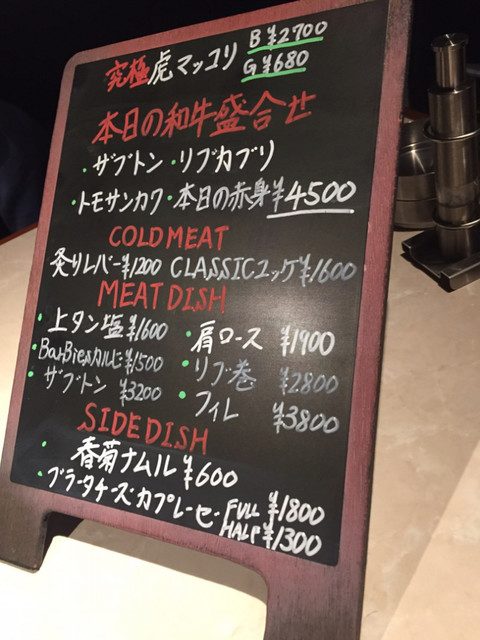 究極虎マッコリ B ¥2700
G ¥680
本日の和牛盛合せ
・ザブトン・リブカブリ
・トモサンカク・本日の赤身 ¥4500
COLD MEAT
炙りレバー ¥1200 CLASSICユッケ ¥1600
MEAT DISH
・上タン塩 ¥1600 ・肩ロース ¥1900
・BarBienカルビ ¥1500 ・リブ巻 ¥2800
・ザブトン ¥3200 ・フィレ ¥3800
SIDE DISH
・香菊ナムル ¥600
・ブラータチーズカプレーゼ FULL ¥1800
HALF ¥1300